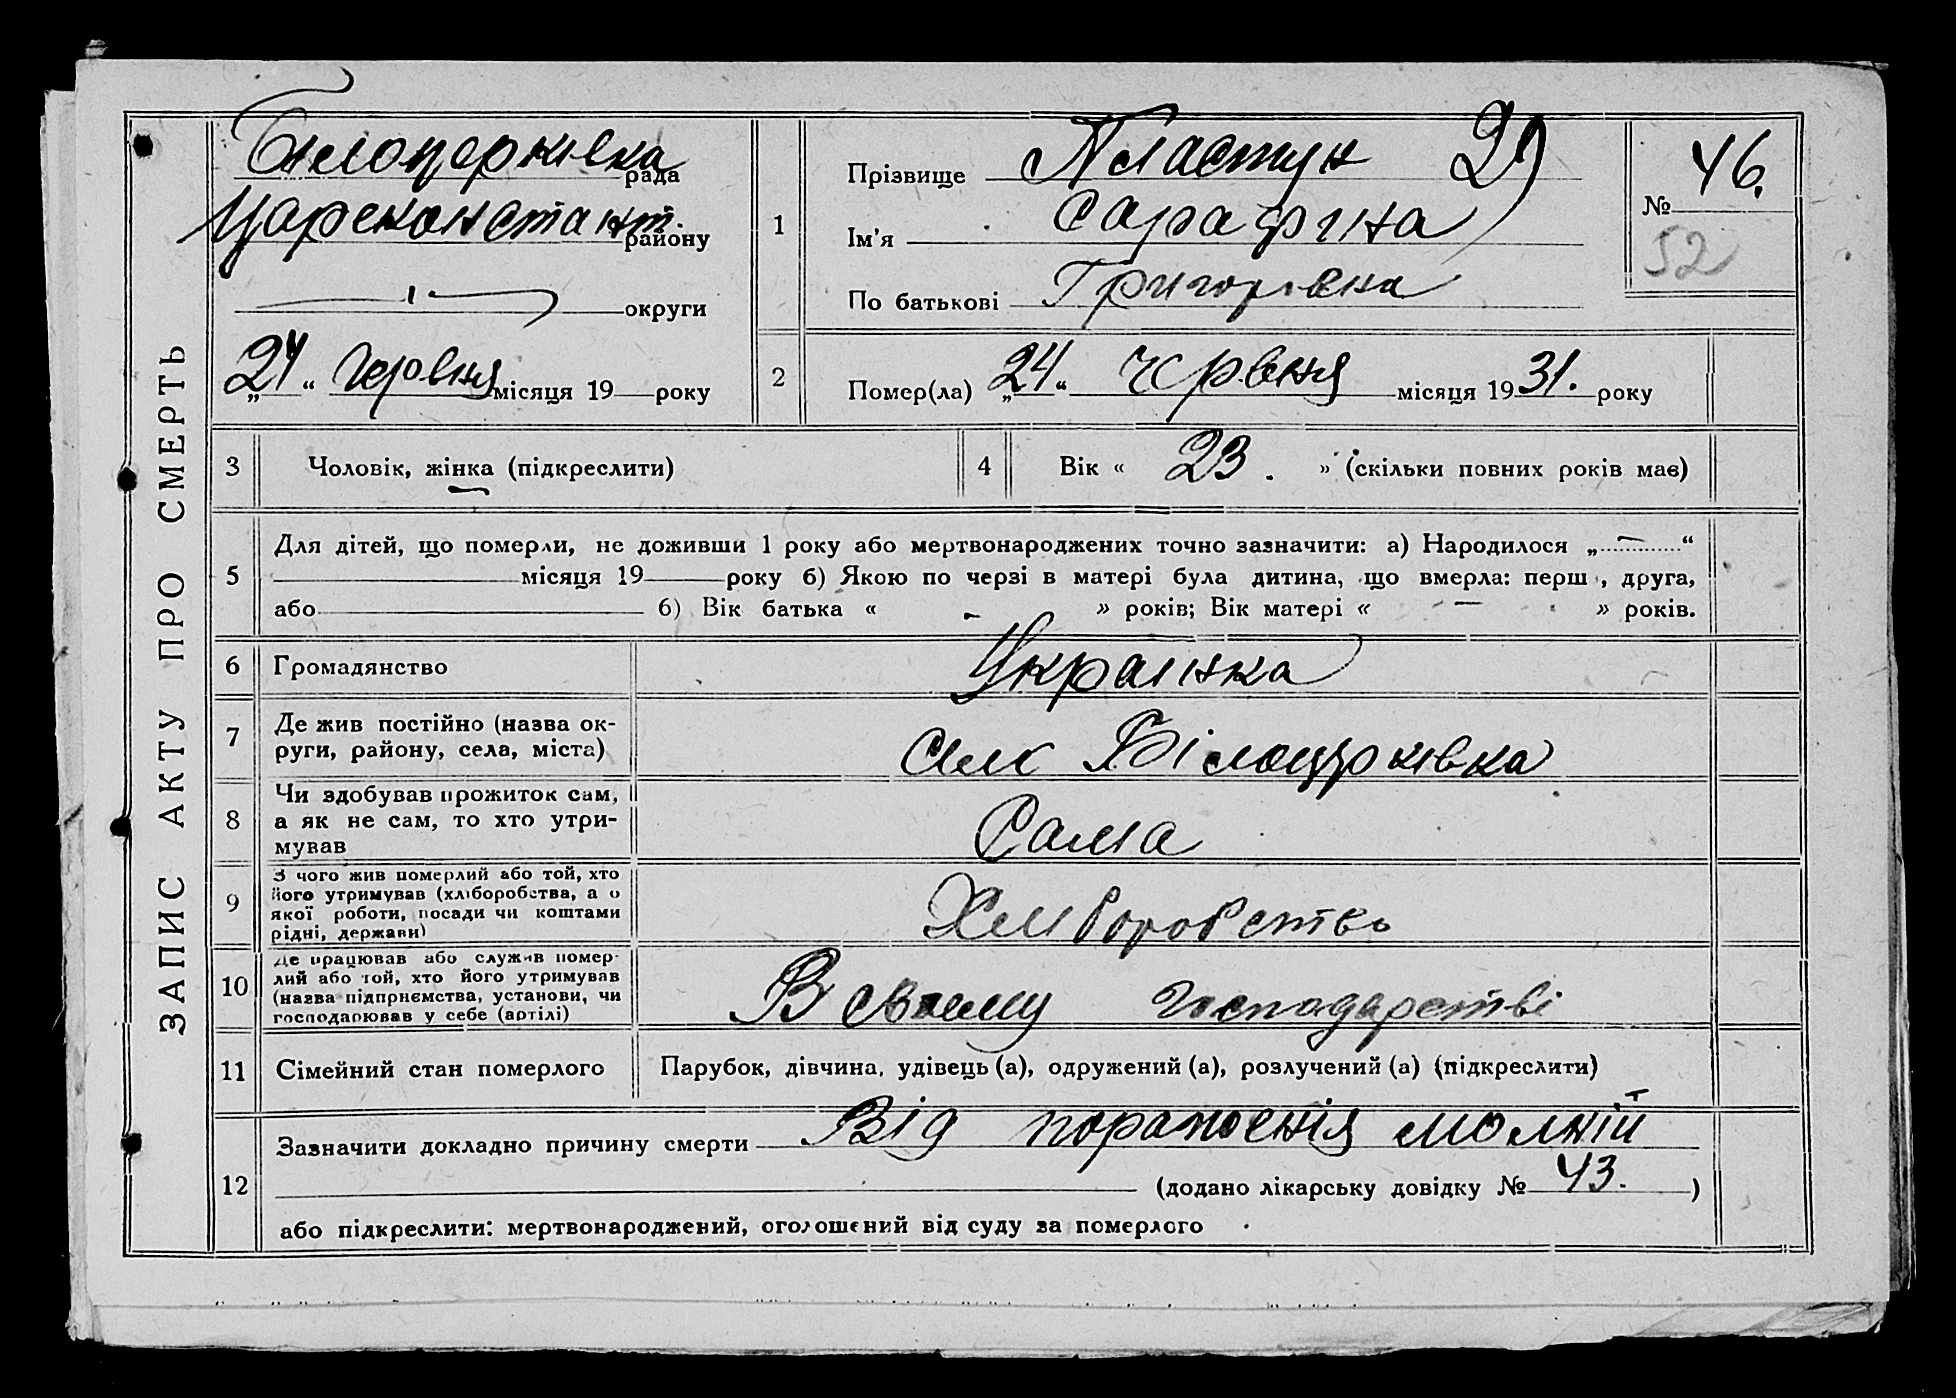 ЗАПИС АКТУ ПРО СМЕРТЬ
Билоцерківка рада
Цареконстант. району
округи
„24“ Червня місяця 19 року
1
Прізвище Пластун 29
Ім'я Сарафина
По батькові Григоровна
№ 46.
52
2
Помер(ла) „24“ червня місяця 1931. року
3 Чоловік, жінка (підкреслити)
4 Вік « 23. » (скільки повних років має)
5
Для дітей, що померли, не доживши 1 року або мертвонароджених точно зазначити: а) Народилося „ — “
місяця 19 року б) Якою по черзі в матері була дитина, що вмерла: перш, друга,
або б) Вік батька « - » років; Вік матері « — » років.
6 Громадянство Украинка
7 Де жив постійно (назва ок-
руги, району, села, міста) Білоцрківка
8 Чи здобував прожиток сам,
а як не сам, то хто утри-
мував Сама
9 З чого жив померлий або той, хто
його утримував (хліборобства, а о
якої роботи, посади чи коштами
рідні, держави) Хлиборобство
10 Де працював або служив помер-
лий або той, хто його утримував
(назва підприємства, установи, чи
господарював у себе (артілі) В своему господарстві
11 Сімейний стан померлого Парубок, дівчина, удівець (а), одружений (а), розлучений (а) (підкреслити)
12
Зазначити докладно причину смерти Від пораження молній
(додано лікарську довідку № 43. )
або підкреслити: мертвонароджений, оголошений від суду за померлого